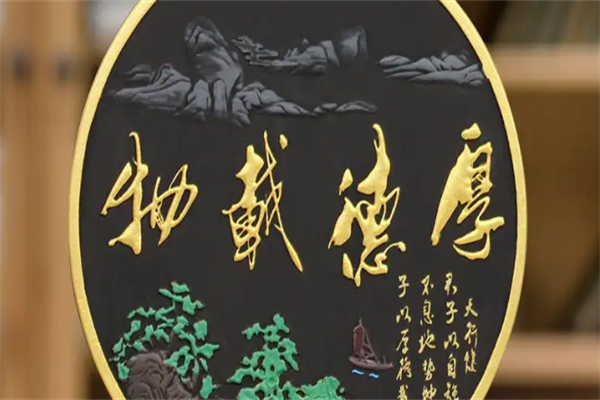 厚德載物
天行健
君子以自強
不息地势坤
子以厚德載